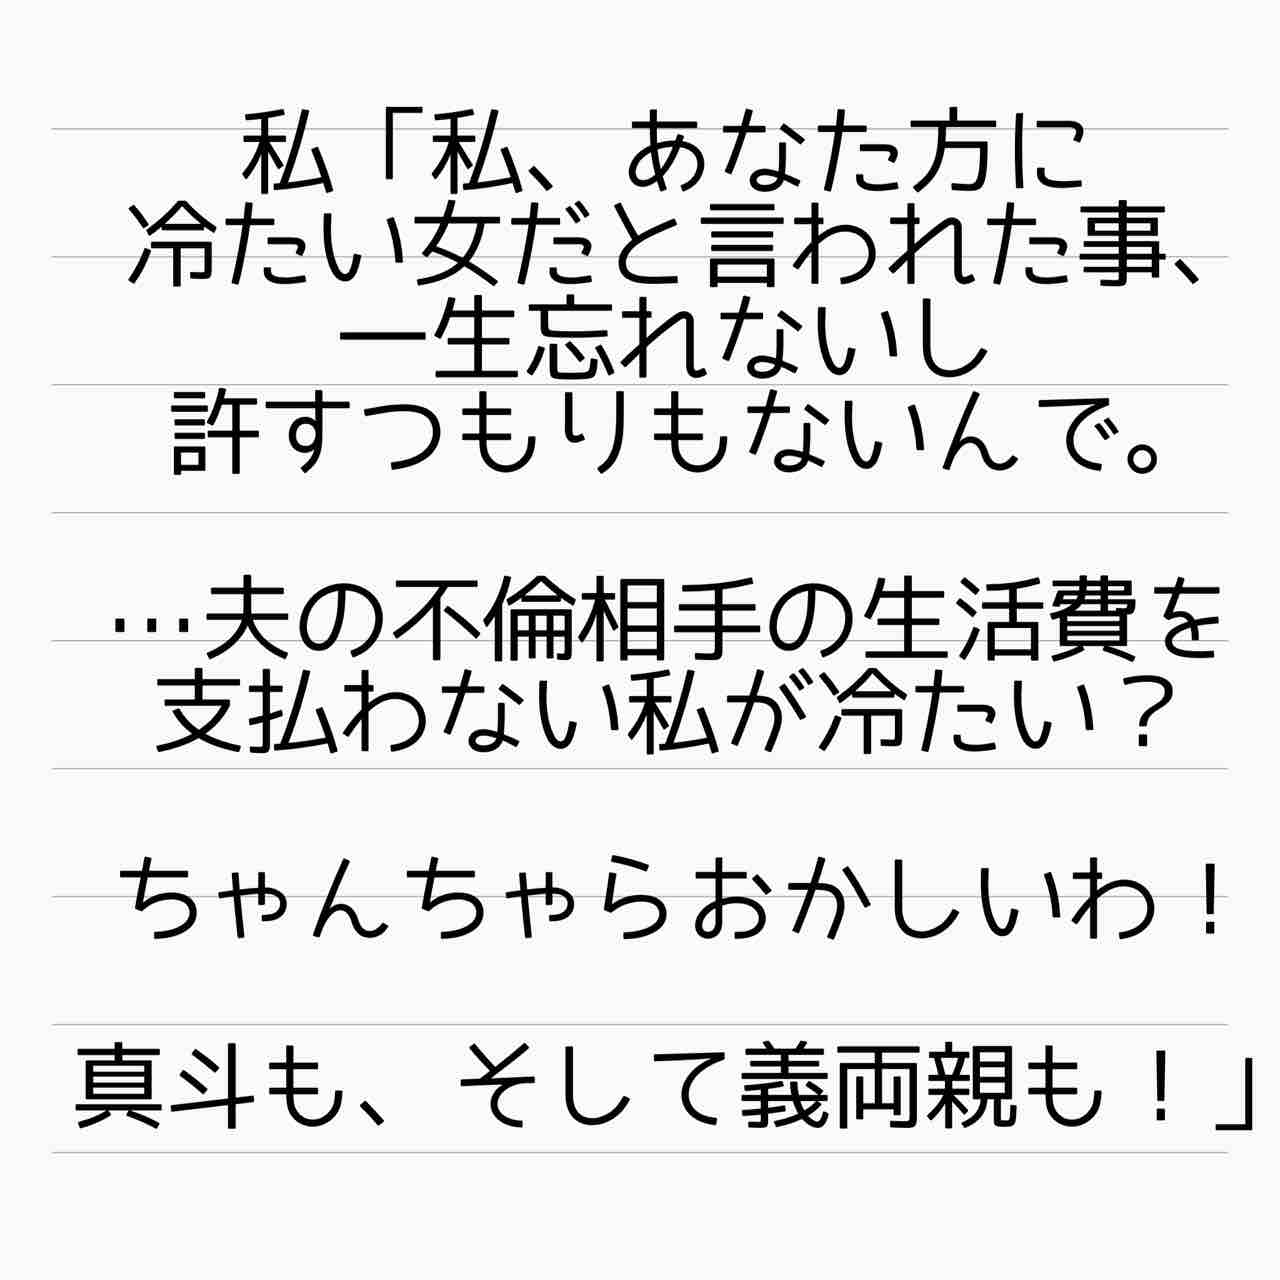 私「私、あなた方に
冷たい女だと言われた事、
一生忘れないし
許すつもりもないんで。
…夫の不倫相手の生活費を
支払わない私が冷たい？
ちゃんちゃらおかしいわ！
真斗も、そして義両親も！」